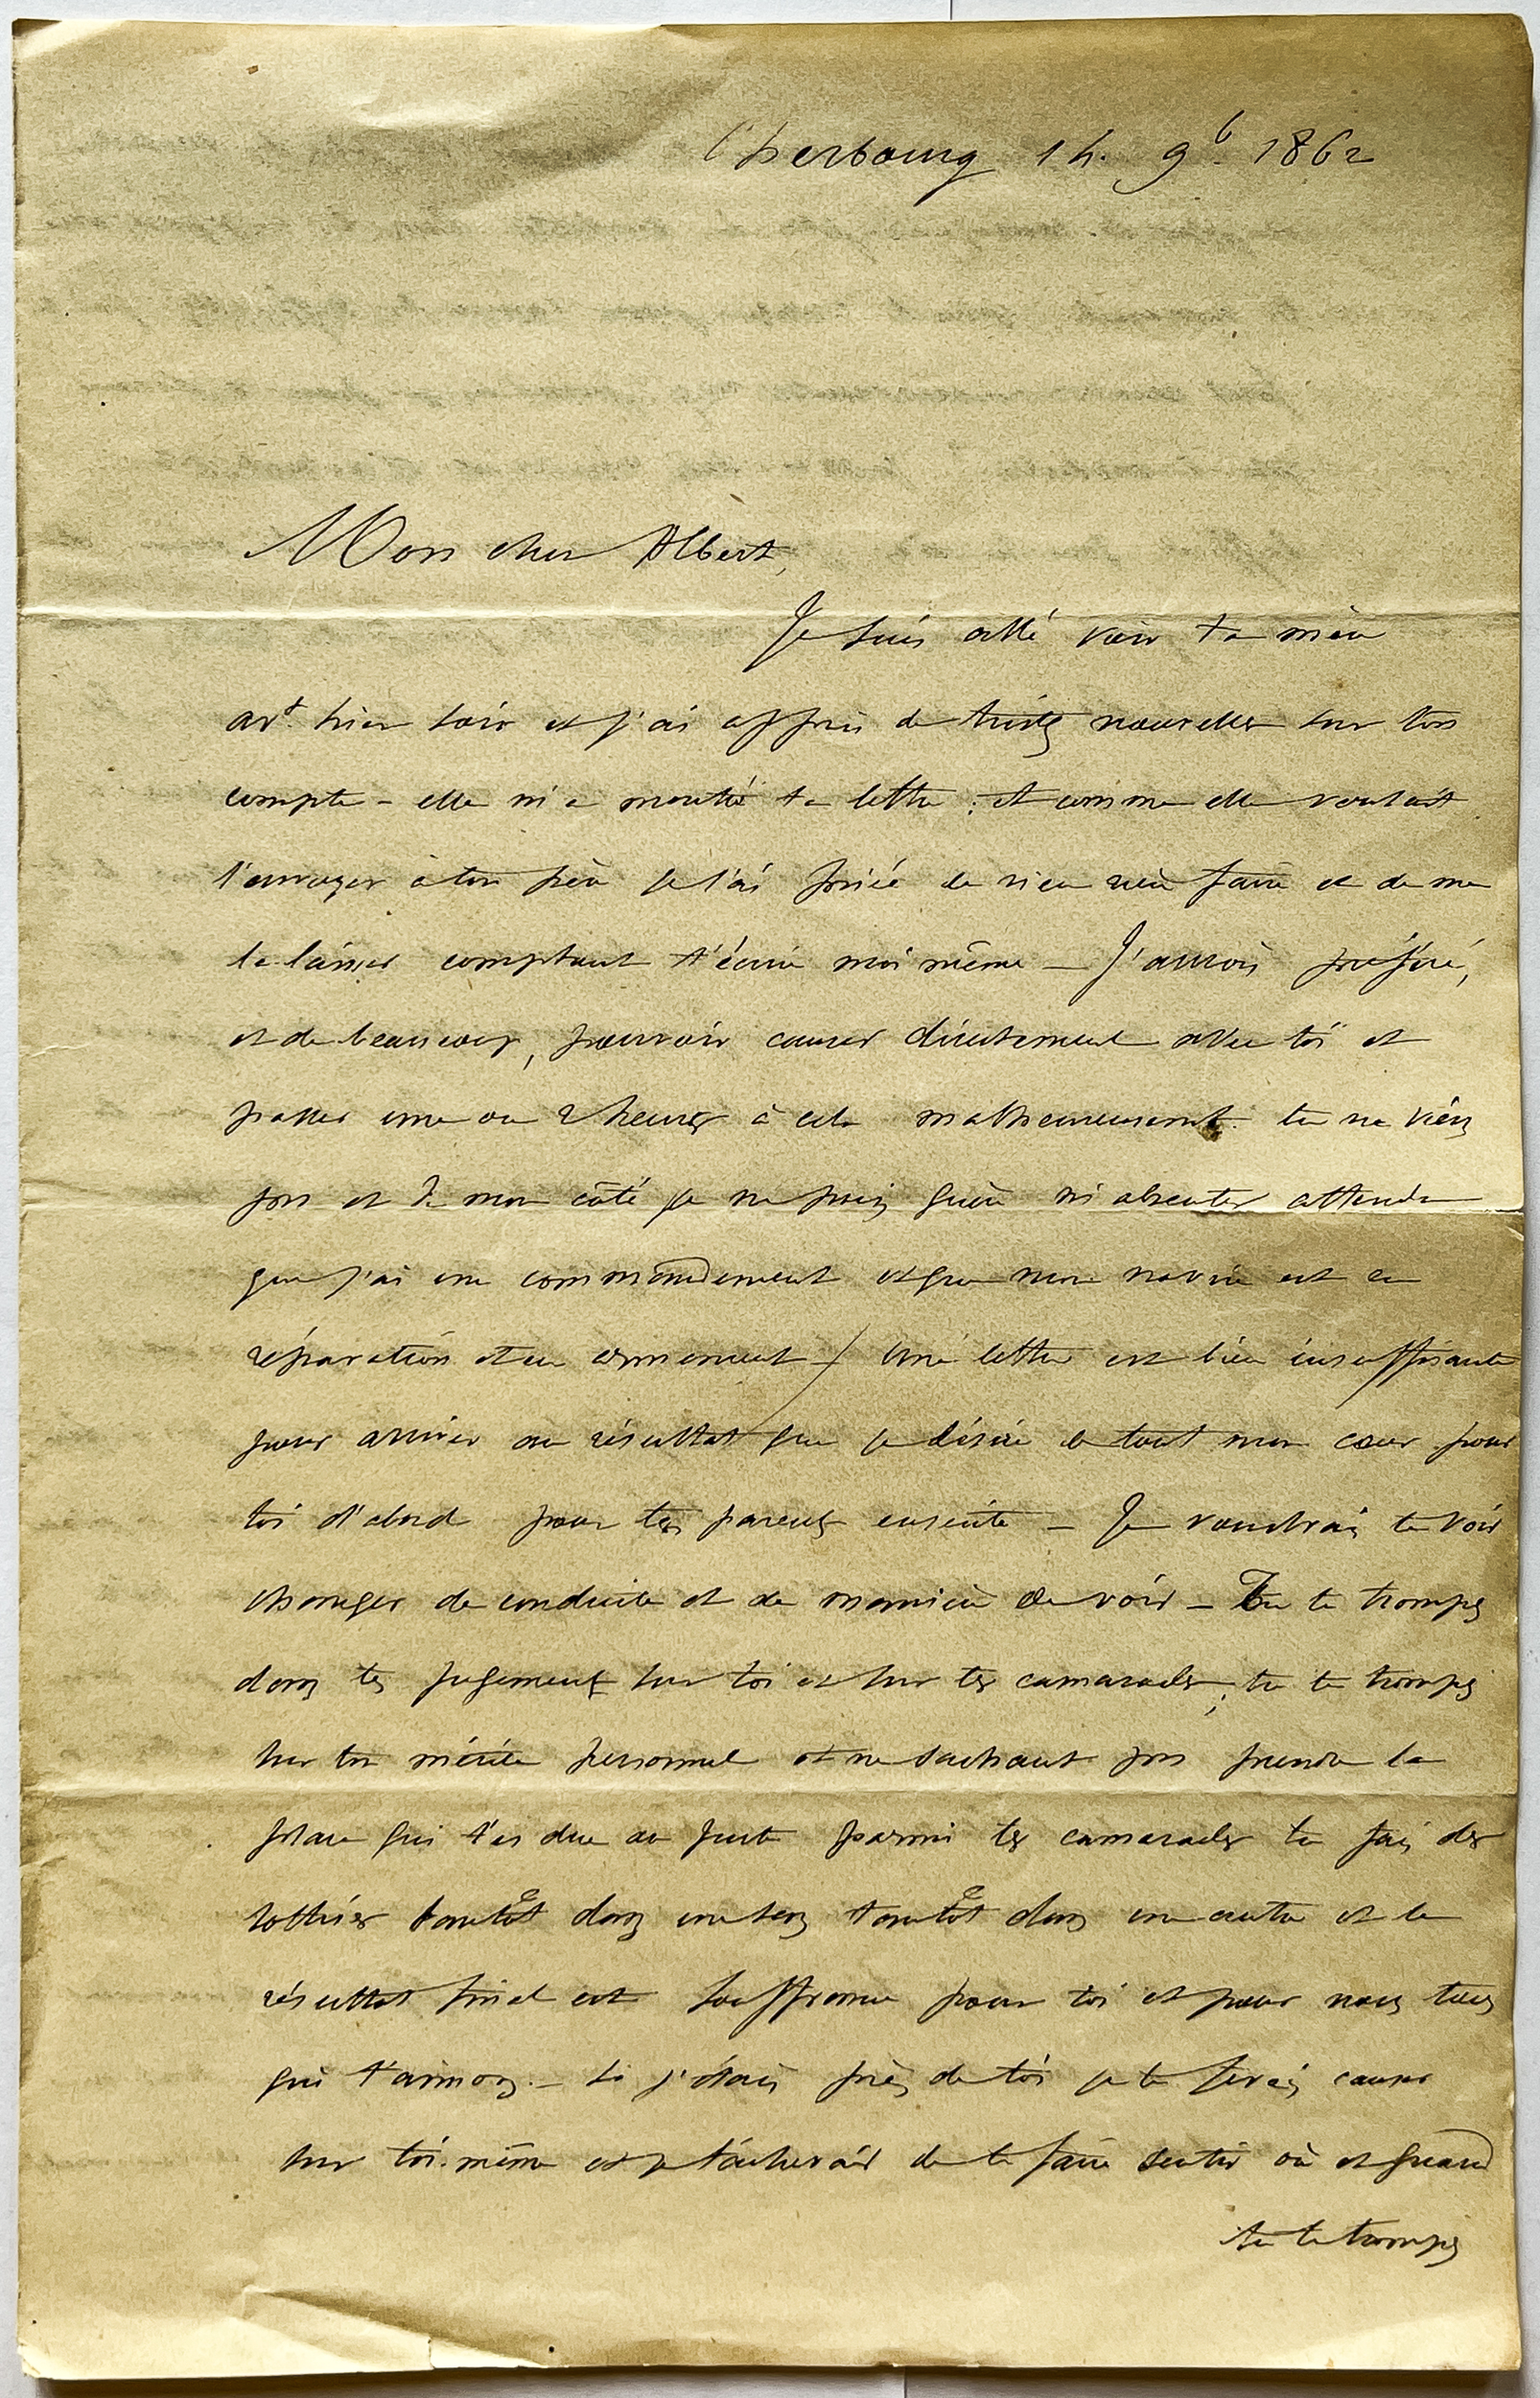 Cherbourg 14. 9b. 1862
Mon cher Albert,
Je suis allé voir ta mère
avt hier soir et j'ai appris de tristes nouvelles sur ton
compte – elle m'a montré ta lettre ; et comme elle voulait
l'envoyer à ton père je l'ai priée de n'en rien faire et de me
la laisser comptant t'écrire moi même – J'aurais préféré,
et de beaucoup, pouvoir causer directement avec toi et
passer une ou 2 heures à cela malheureusement. tu ne viens
pas et de mon côté je ne puis guère m'absenter attendu
que j'ai un commandement et que mon navire est en
réparation et en armement – Une lettre est bien insuffisante
pour arriver au résultat que je désire de tout mon cœur pour
toi d'abord pour tes parents ensuite – Je voudrais te voir
changer de conduite et de manière de voir – Tu te trompes
dans tes jugements sur toi et sur tes camarades ; tu te trompes
sur ton mérite personnel et ne sachant pas prendre la
place qui t'es due au juste parmi tes camarades tu fais des
sottises tantôt dans un sens tantôt dans un autre et le
résultat final est souffrance pour toi et pour nous tous
qui t'aimons. – Si j'étais près de toi je te ferais causer
sur toi-même et je tâcherais de te faire sentir où et quand
tu te trompes